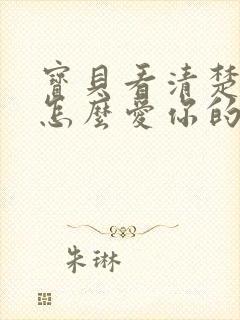 寶貝看清楚
怎麼愛你的
朱琳